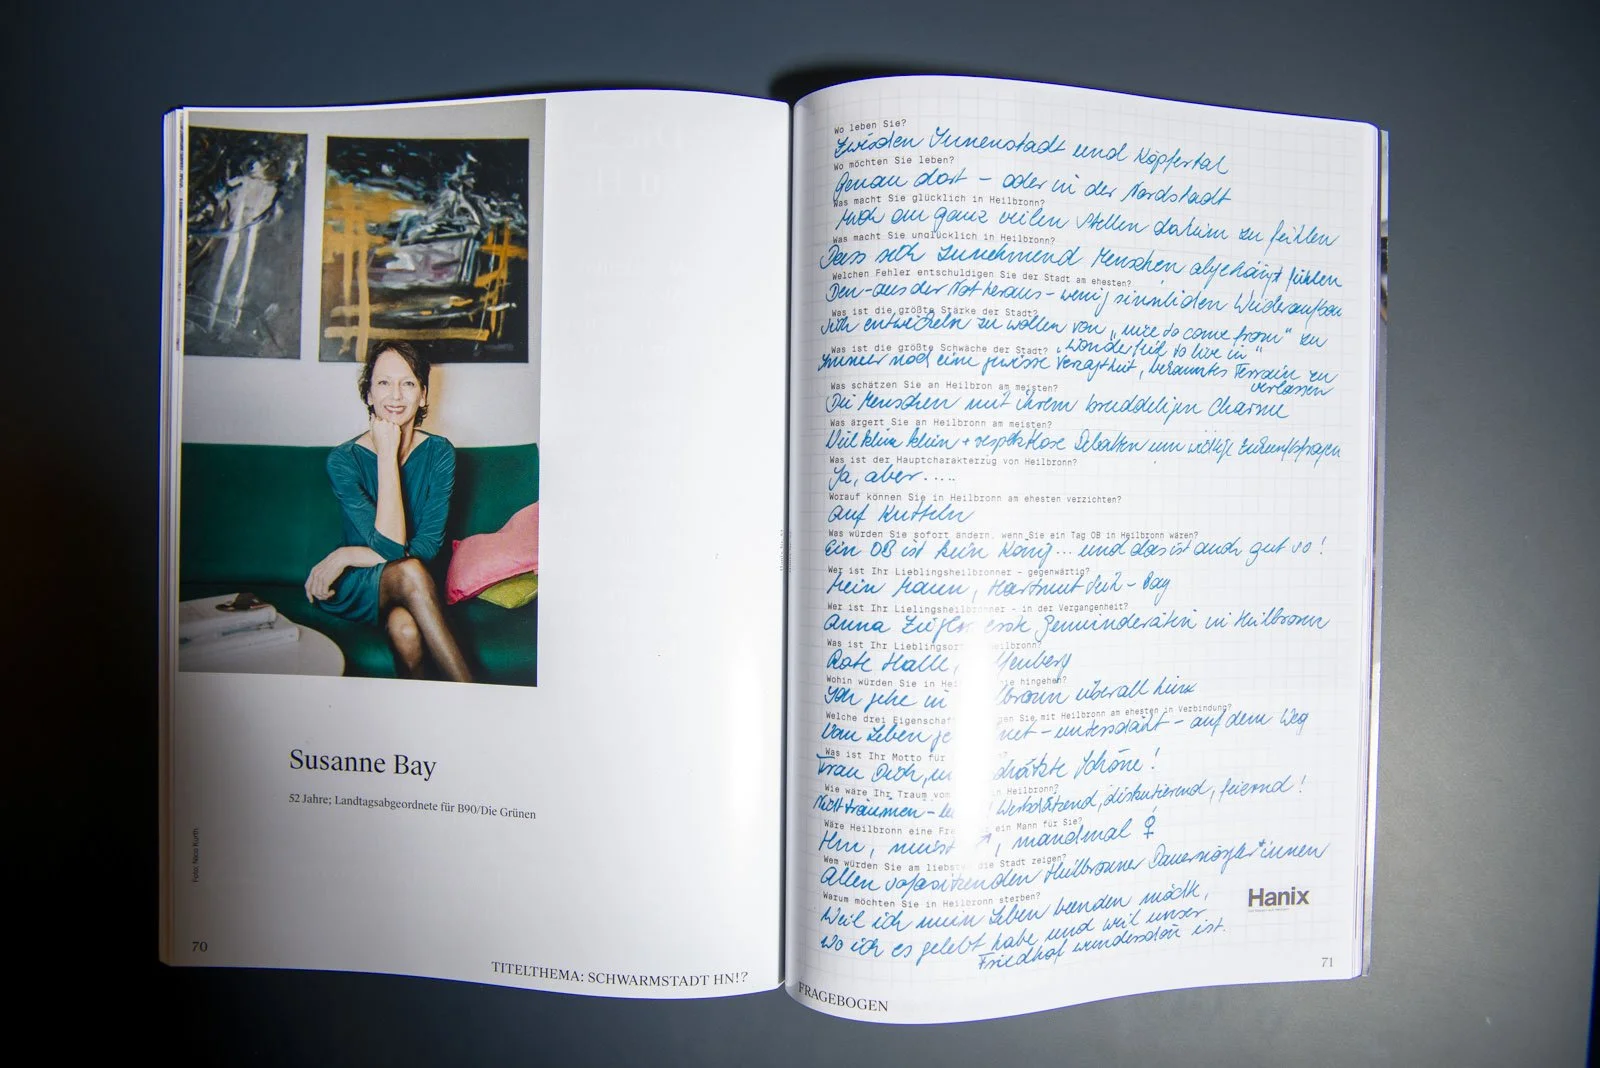 Susanne Bay
52 Jahre; Landtagsabgeordnete für B90/Die Grünen
Foto: Nico Kurth
70
TITELTHEMA: SCHWARMSTADT HN!?
Wo leben Sie?
Zwischen Innenstadt und Köpfertal
Wo möchten Sie leben?
Genau dort – oder in der Nordstadt
Was macht Sie glücklich in Heilbronn?
Mich an ganz vielen Stellen daheim zu fühlen
Was macht Sie unglücklich in Heilbronn?
Dass sich zunehmend Menschen abgehängt fühlen
Welchen Fehler entschuldigen Sie der Stadt am ehesten?
Den – aus der Not heraus – wenig sinnlichen Wiederaufbau
Was ist die größte Stärke der Stadt?
Sich entwickeln zu wollen von „nice to come from" zu
„wonderful to live in"
Was ist die größte Schwäche der Stadt?
Immer noch eine gewisse Verzagtheit, bekanntes Terrain zu
verlassen
Was schätzen Sie an Heilbronn am meisten?
Die Menschen mit ihrem bruddeligen Charme
Was ärgert Sie an Heilbronn am meisten?
Viel klein klein + respektlose Debatten um wichtige Zukunftsfragen
Was ist der Hauptcharakterzug von Heilbronn?
Ja, aber.....
Worauf können Sie in Heilbronn am ehesten verzichten?
Auf Kutteln
Was würden Sie sofort ändern, wenn Sie ein Tag OB in Heilbronn wären?
Ein OB ist kein König... und das ist auch gut so!
Wer ist Ihr Lieblingsheilbronner – gegenwärtig?
Mein Mann, Hartmut - Bay
Wer ist Ihr Lielingsheilbronner – in der Vergangenheit?
Anna Ziegler erste Gemeinderätin in Heilbronn
Was ist Ihr Lieblingsor Heilbronn?
Rote Halle,
Wohin würden Sie in Hei nie hingehen?
Ich gehe in lbronn überall hin
Welche drei Eigenschaf gen Sie mit Heilbronn am ehesten in Verbindung?
Vom Leben ge net – unterschätzt – auf dem Weg
Was ist Ihr Motto für
Trau Dich, un schätzte Schöne!
Wie wäre Ihr Traum vom in Heilbronn?
Nicht träumen – le ! Wertschätzend, diskutierend, feiernd!
Wäre Heilbronn eine Fra ein Mann für Sie?
Hm, meist ♂, manchmal ♀
Wem würden Sie am liebste die Stadt zeigen?
Allen Heilbronner Dauernörgler*innen
Warum möchten Sie in Heilbronn sterben?
Weil ich mein Leben beenden möcht,
wo ich es gelebt habe und weil unser
Friedhof wunderschön ist.
Hanix
71
FRAGEBOGEN